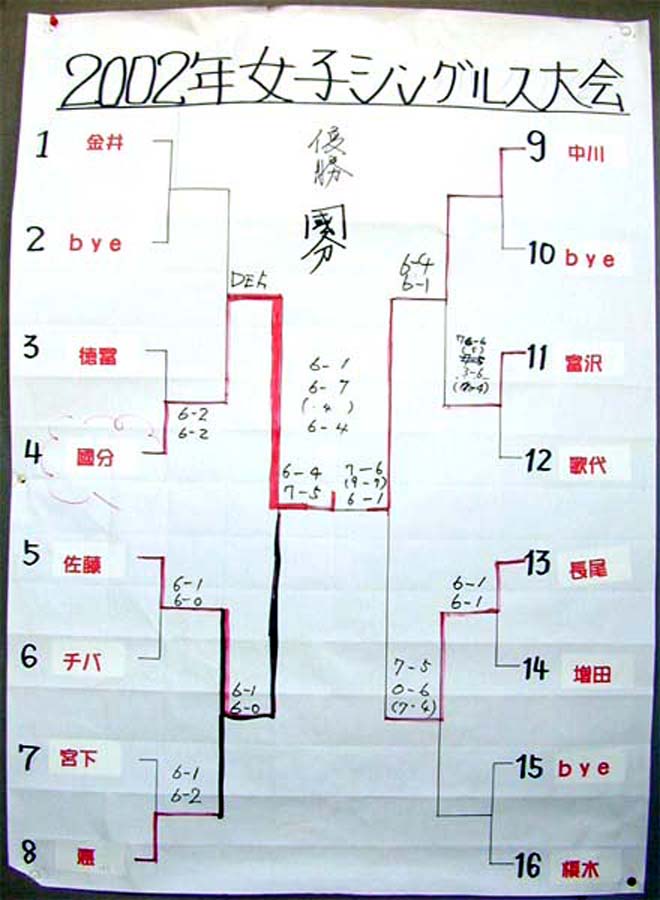 2002年女子シングルス大会
優勝
國分
1 金井
2 bye
3 徳冨
4 國分
5 佐藤
6 チバ
7 宮下
8 憲
DEF
6-2
6-2
6-1
6-0
6-1
6-0
6-1
6-2
6-1
6-7
(.4)
6-4
6-4
7-5
7-6
(9-7)
6-1
9 中川
10 bye
11 富沢
12 歌代
13 長尾
14 増田
15 bye
16 榎木
6-4
6-1
3-6
(7-4)
6-1
6-1
7-5
0-6
(7-4)